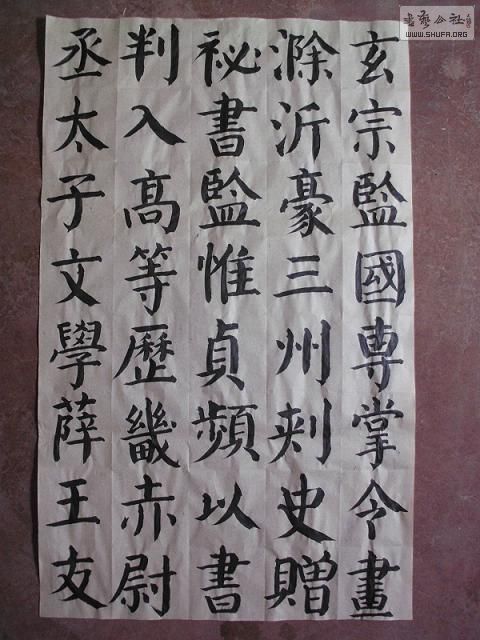 玄宗監國專掌令畫
滁沂豪三州刾史贈
祕書監惟貞頻以書
判入高等歷畿赤尉
丞太子文學薛王友
書藝公社
WWW.SHUFA.ORG